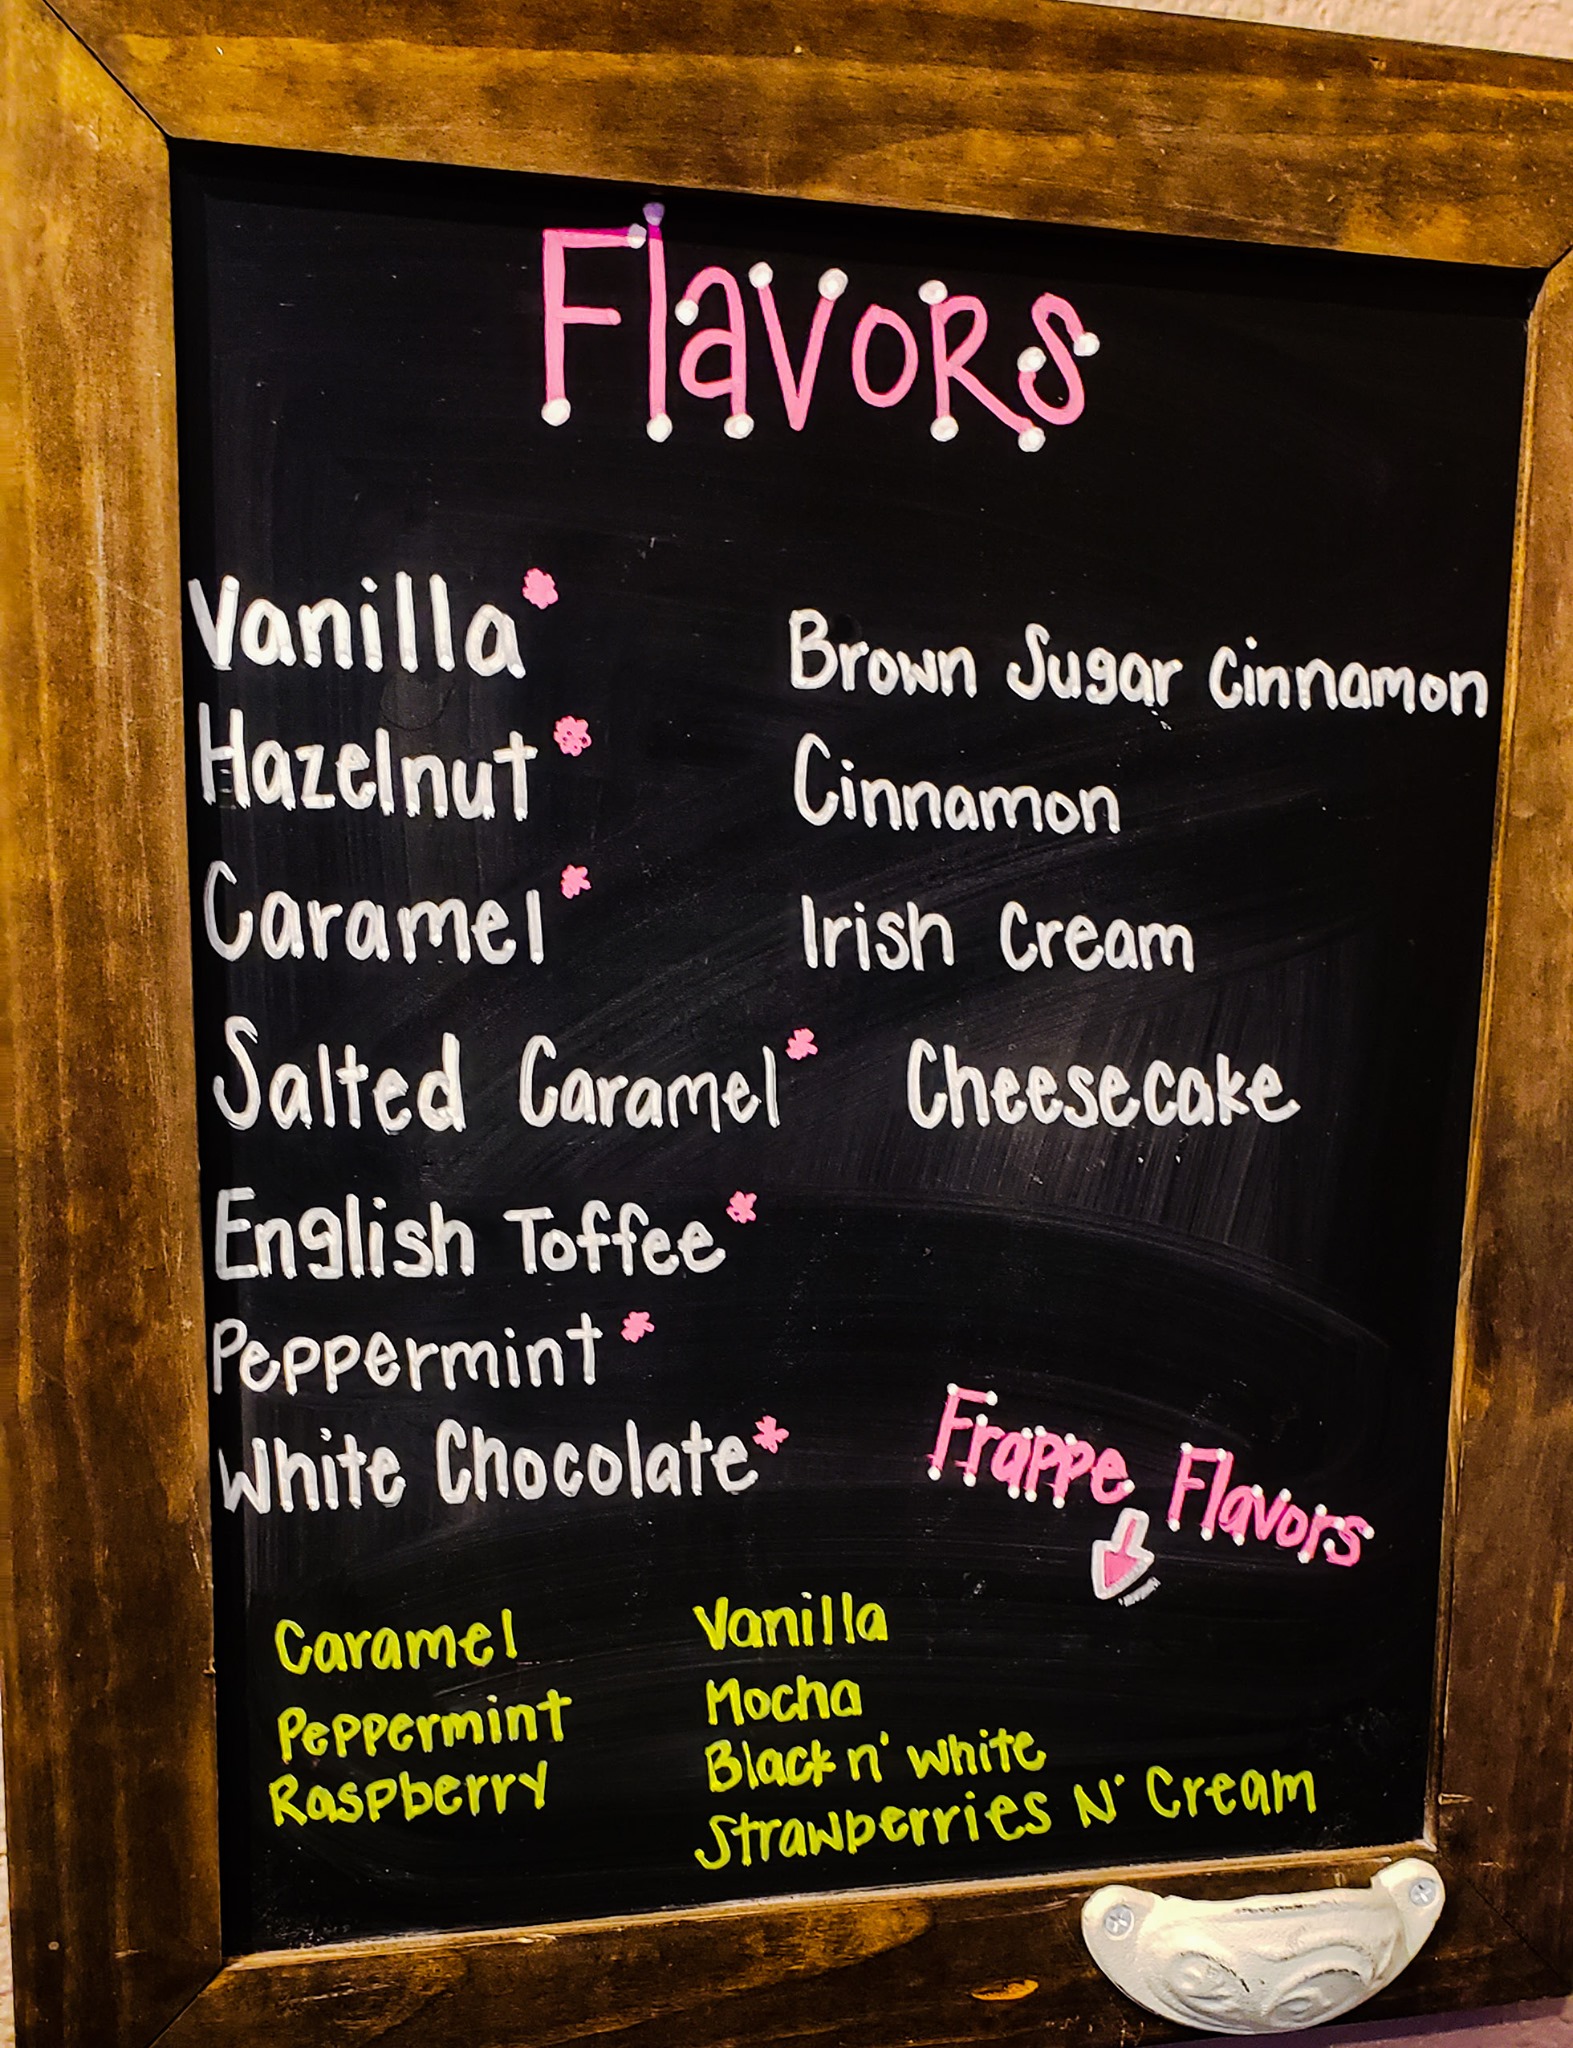 Flavors
Vanilla*
Hazelnut*
Caramel*
Salted Caramel*
English Toffee*
Peppermint*
White Chocolate*
Brown Sugar Cinnamon
Cinnamon
Irish Cream
Cheesecake
Frappe Flavors
Caramel
Peppermint
Raspberry
Vanilla
Mocha
Black n' white
Strawberries N' Cream